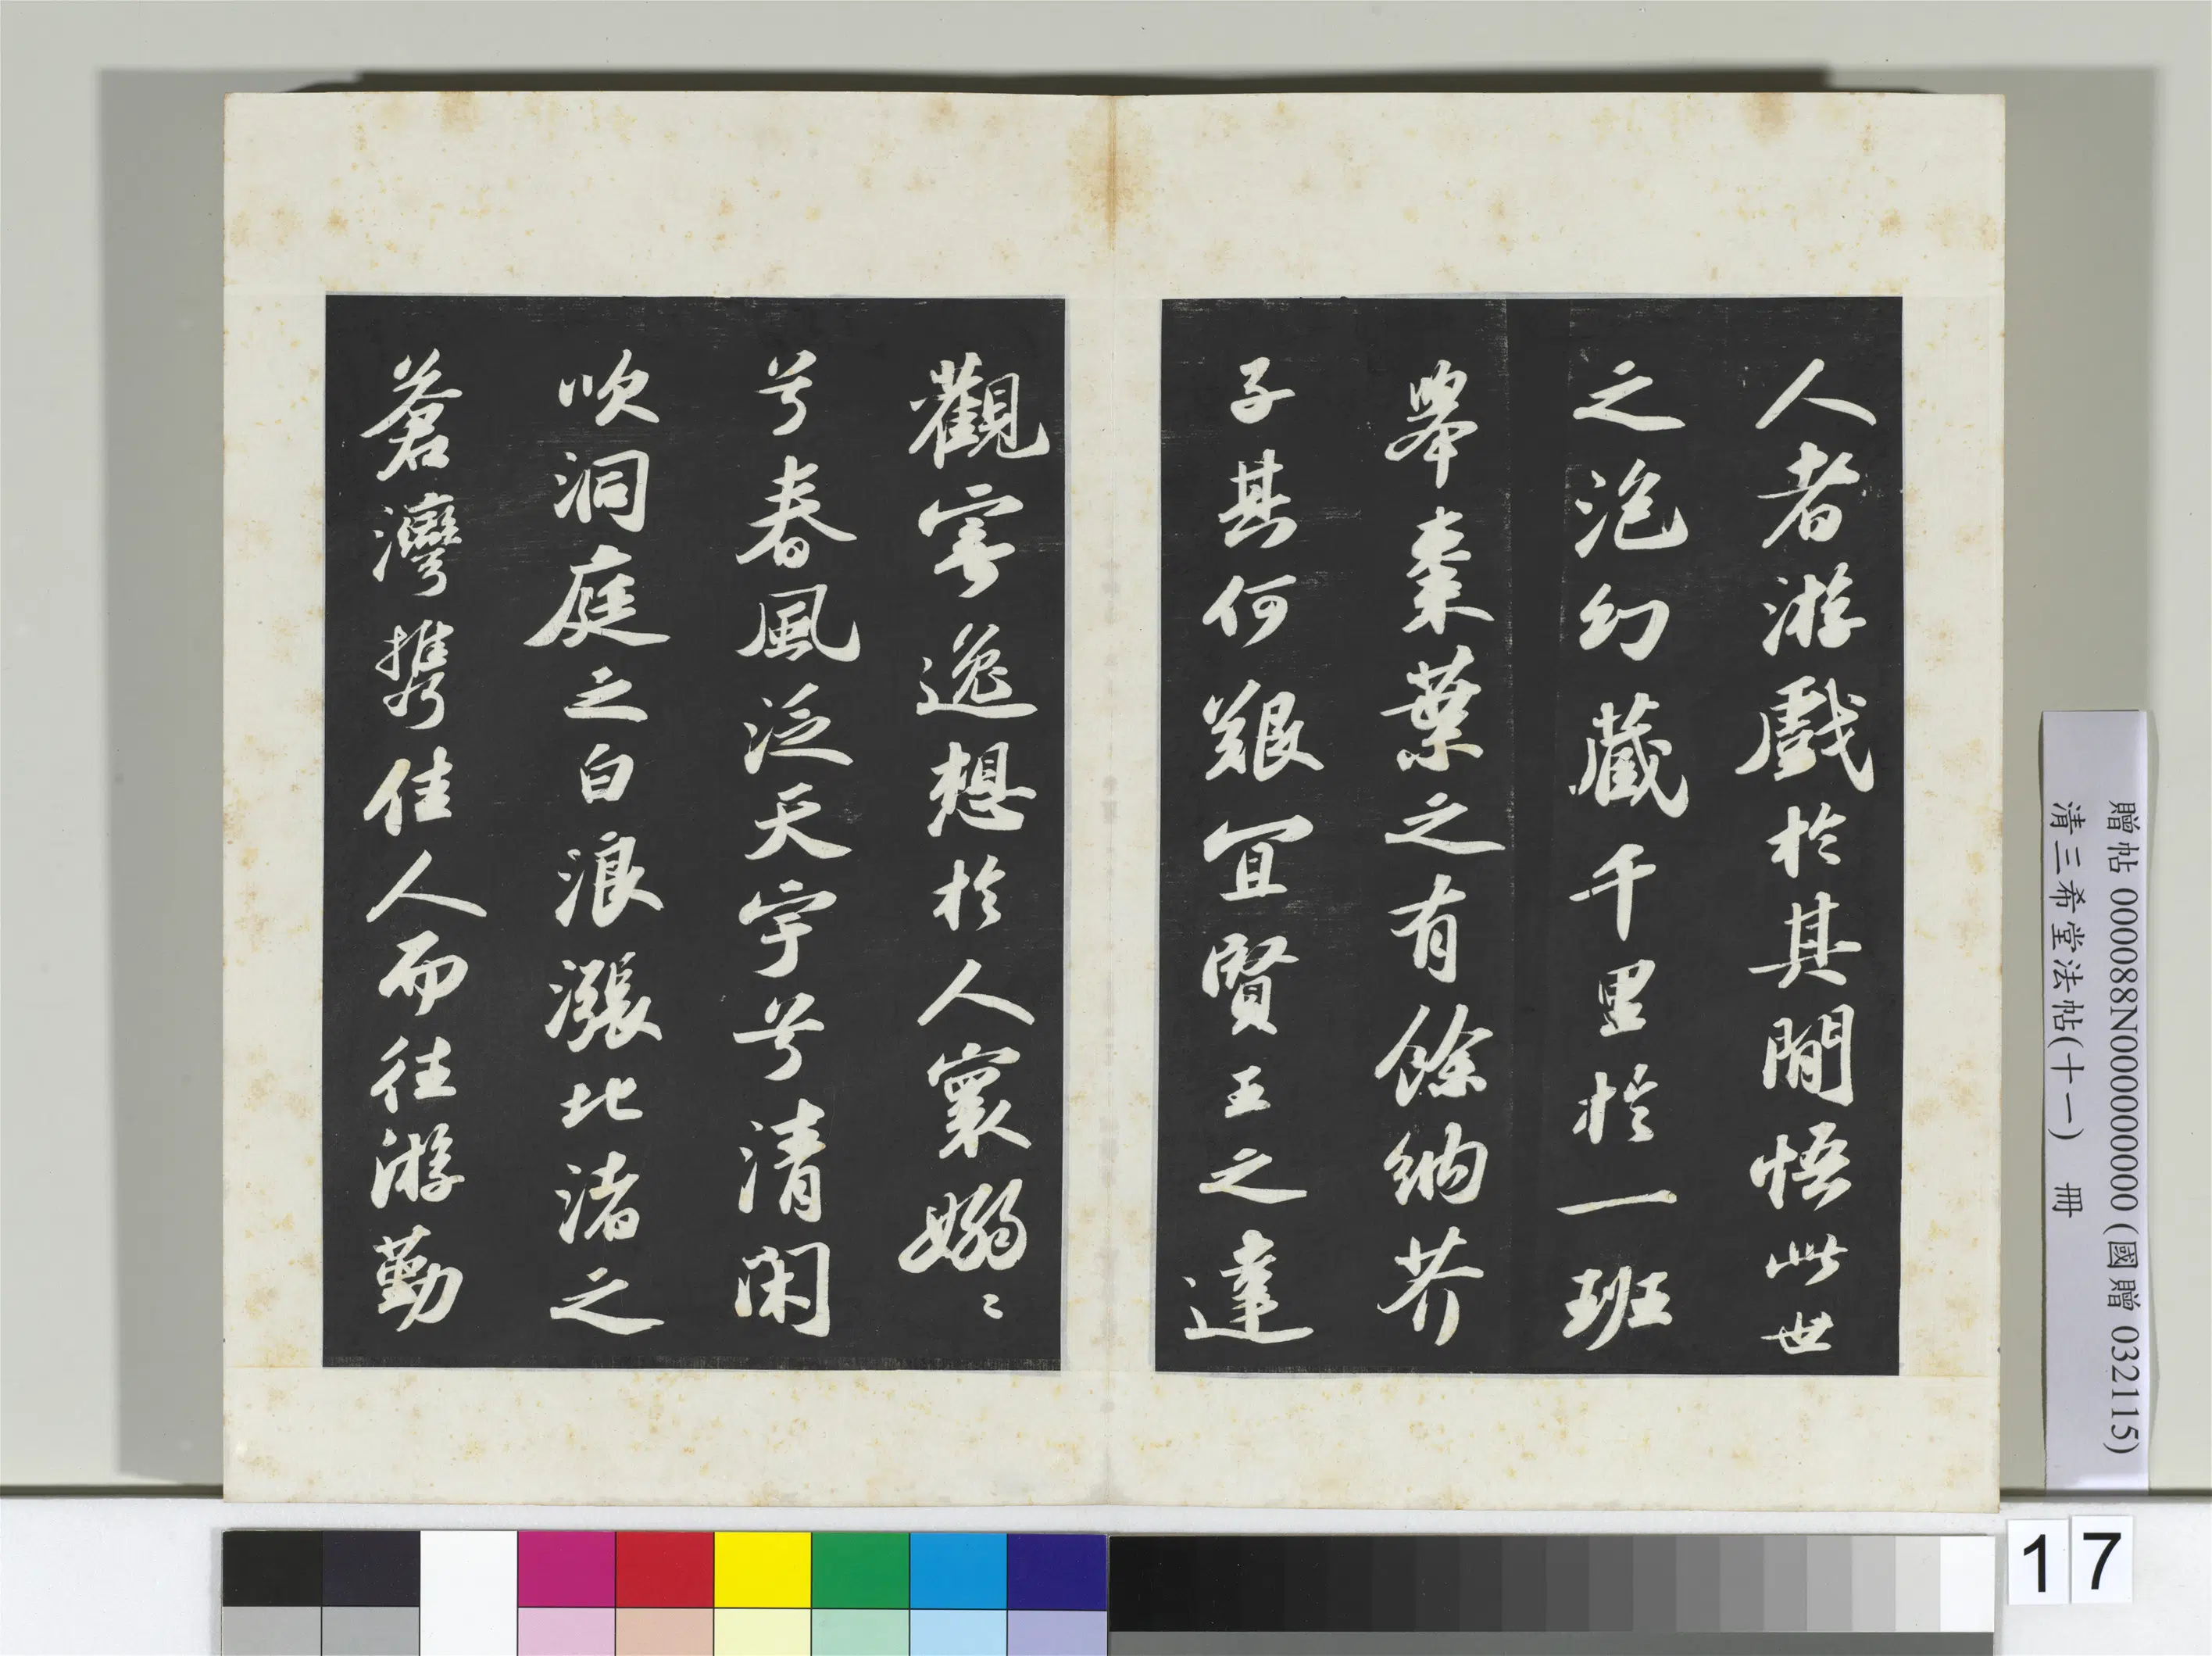 人者游戲於其間悟此世
之泡幻藏千里於一班
舉棗葉之有餘納芥
子其何艱宜賢王之達
觀寄逸想於人寰嫋〻
兮春風泛天宇兮清閑
吹洞庭之白浪漲北渚之
蒼灣攜佳人而往游勤
贈帖 000088N000000000 (國贈 032115)
清三希堂法帖(十一) 冊
17